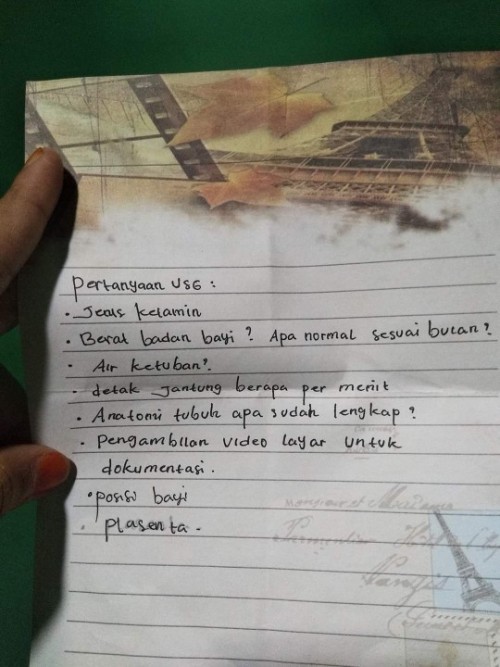 Pertanyaan USG :
• Jenis kelamin
• Berat badan bayi ? Apa normal sesuai bulan ?
• Air ketuban ?
• detak jantung berapa per menit
• Anatomi tubuh apa sudah lengkap ?
• Pengambilan video layar untuk
dokumentasi.
• posisi bayi
• Plasenta.